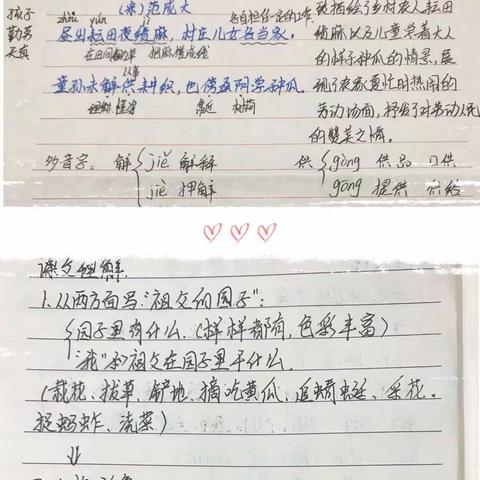 孩子
勤劳
天真
(宋)范成大
zhòu yún jì
昼出耘田夜绩麻,村庄儿女各当家。
各自担任一定的工作
在田间除草 把麻搓成线
童孙未解供耕织,也傍桑阴学种瓜。
从事
理解 懂得 靠近 树荫
描绘了乡村农人耘田
绩麻以及儿童学着大人
的样子种瓜的情景,展
现了农家夏忙时热闹的
劳动场面,抒发了对劳动人民
的赞美之情。
多音字: 解 jiě 解释
jiè 押解
供 gòng 供品 口供
gōng 提供 供给
课文理解:
1.从两方面写“祖父的园子”:
园子里有什么.(样样都有,色彩丰富)
“我”和祖父在园子里干什么.
(栽花、拔草、铲地、摘吃黄瓜、追蜻蜓、采花、
捉蚂蚱、浇菜)